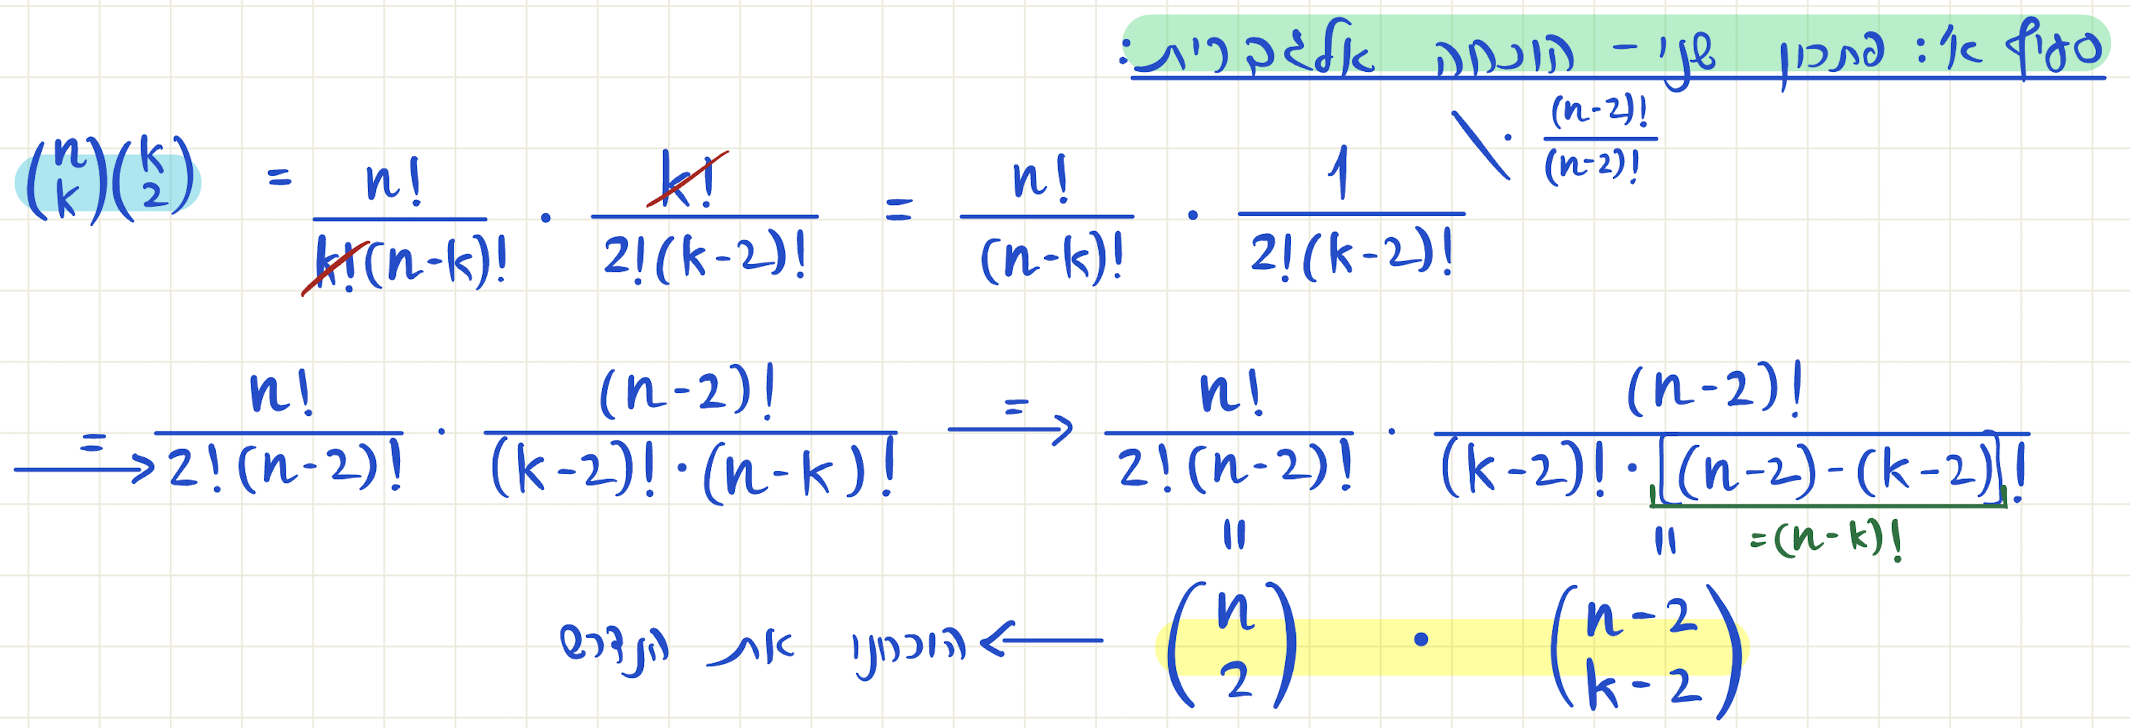 סעיף א': פתרון שני - הוכחה אלגברית:
\ · (n-2)! / (n-2)!
(n k)(k 2) = n! / k!(n-k)! · k! / 2!(k-2)! = n! / (n-k)! · 1 / 2!(k-2)!
=→ n! / 2!(n-2)! · (n-2)! / (k-2)!·(n-k)! =→ n! / 2!(n-2)! · (n-2)! / (k-2)!·[(n-2)-(k-2)]!
= = =(n-k)!
(n 2) · (n-2 k-2) ← הוכחנו את הנדרש